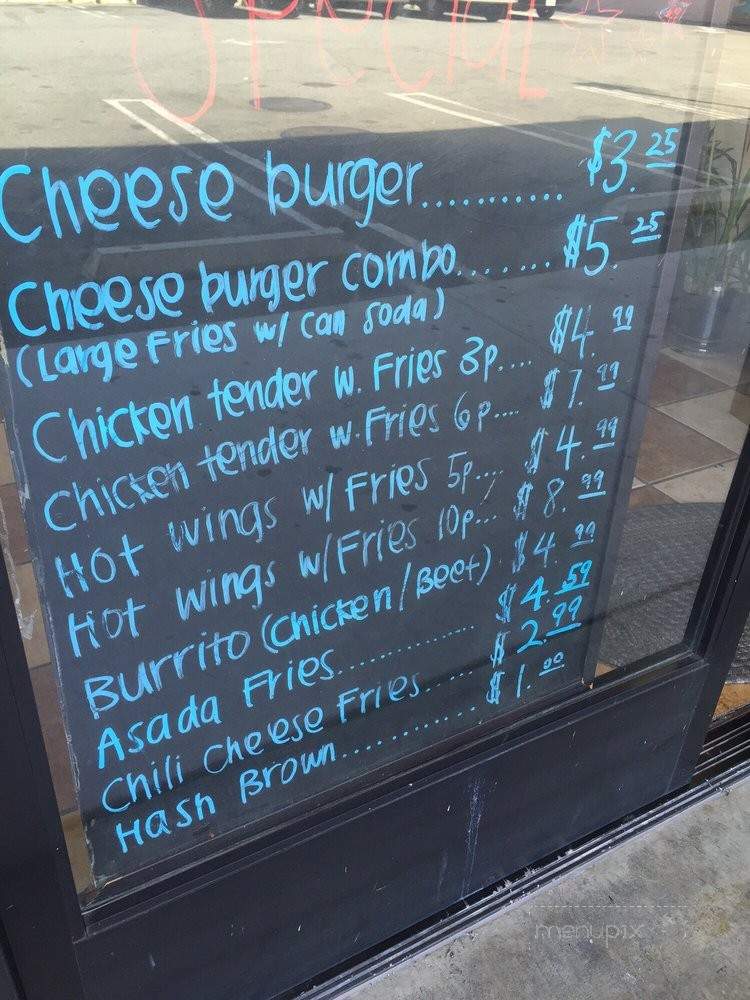 SPECIAL
Cheese burger........... $3.25
Cheese burger combo....... $5.25
(Large Fries w/ Can Soda)
Chicken tender w. Fries 3p.... $4.99
Chicken tender w. Fries 6p.... $7.99
Hot wings w/ Fries 5p.... $4.99
Hot wings w/ Fries 10p... $8.99
Burrito (Chicken/Beef) $4.99
Asada Fries............... $4.59
Chili Cheese Fries..... $2.99
Hash Brown.............. $1.00
menupix